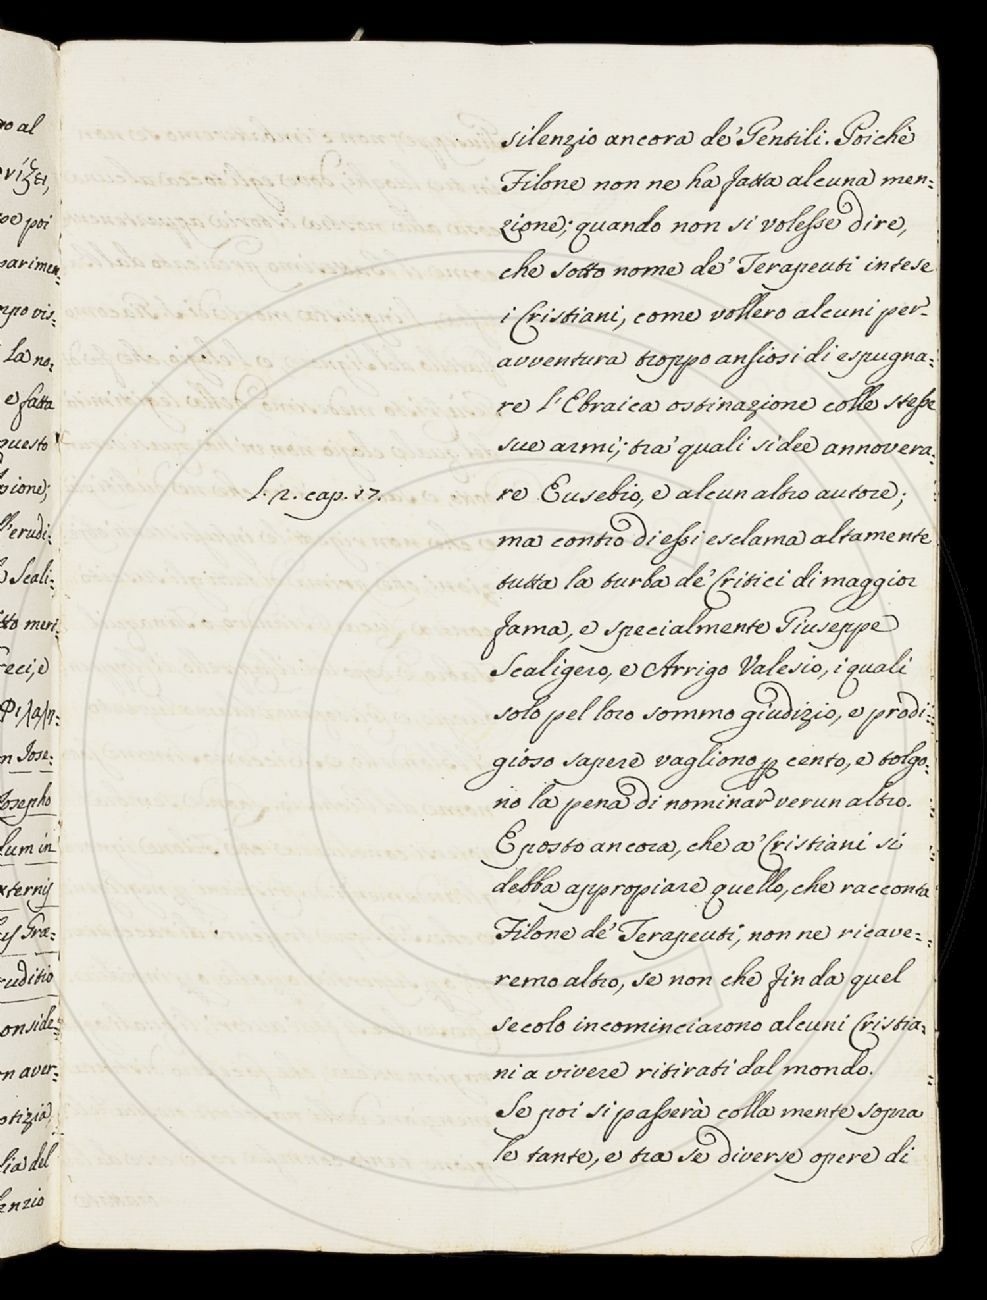 silenzio ancora de' Gentili. Poichè
Filone non ne ha fatta alcuna men=
zione; quando non si volesse dire,
che sotto nome de' Terapeuti intese
i Cristiani, come vollero alcuni per
avventura troppo ansiosi di espugna=
re l'Ebraica ostinazione colle stesse
sue armi; tra' quali si dee annovera=
l. 2. cap. 17.
re Eusebio, e alcun altro autore;
ma contro di essi esclama altamente
tutta la turba de' Critici di maggior
fama, e specialmente Giuseppe
Scaligero, e Arrigo Valesio, i quali
solo pel loro sommo giudizio, e prodi=
gioso sapere vagliono p cento, e tolgo=
no la pena di nominar verun altro.
E posto ancora, che a' Cristiani si
debba appropiare quello, che racconta
Filone de' Terapeuti, non ne ricave=
remo altro, se non che fin da quel
secolo incominciarono alcuni Cristia=
ni a vivere ritirati dal mondo.
Se poi si passerà colla mente sopra
le tante, e tra se diverse opere di